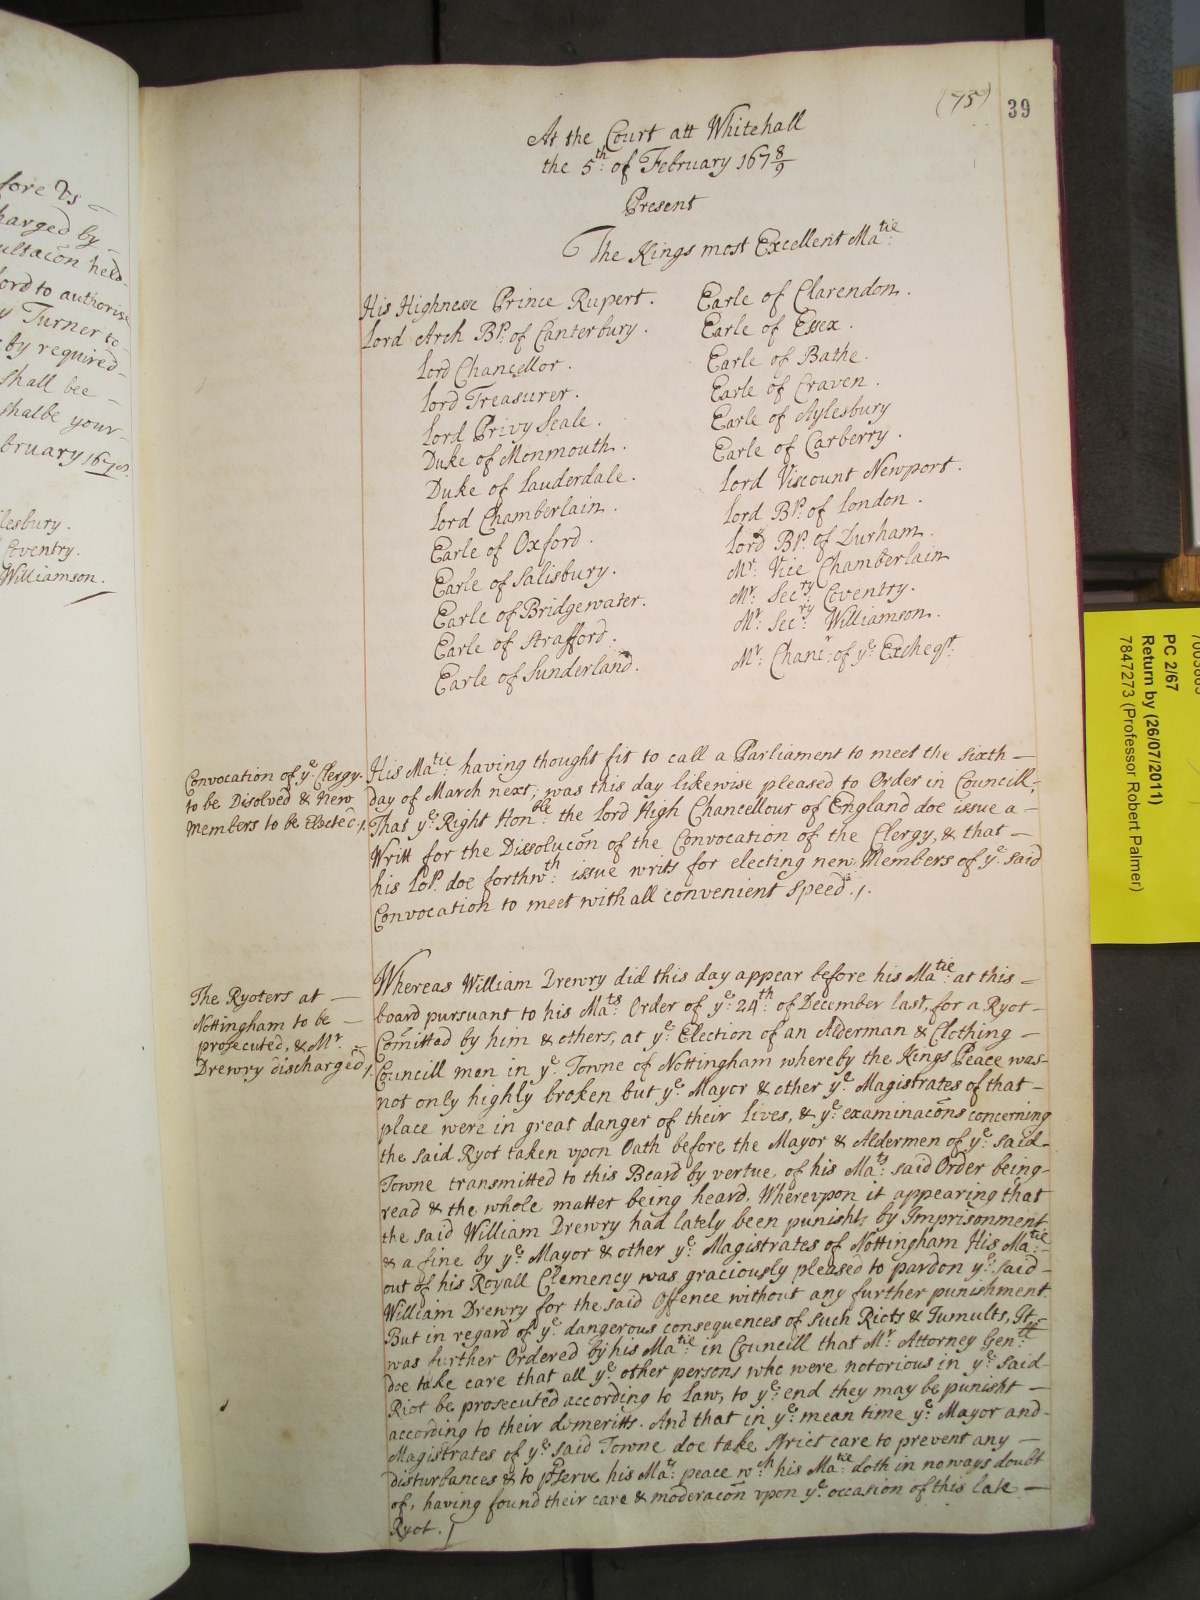 fore Us
harged by
ultacõn held
ord to authorise
y Turner to
by required
shall bee
shalbe your
bruary 167 8/9
lesbury.
Coventry.
Williamson.
(75)
39
At the Court att Whitehall
the 5th of February 167 8/9
Present
The Kings most Excellent Matie
His Highnesse Prince Rupert.
Lord Arch BP. of Canterbury.
Lord Chancellor.
Lord Treasurer.
Lord Privy Seale.
Duke of Monmouth.
Duke of Lauderdale.
Lord Chamberlain.
Earle of Oxford.
Earle of Salisbury.
Earle of Bridgewater.
Earle of Strafford.
Earle of Sunderland.
Earle of Clarendon.
Earle of Essex.
Earle of Bathe.
Earle of Craven.
Earle of Aylesbury
Earle of Carberry.
Lord Viscount Newport.
Lord BP. of London.
Lord BP. of Durham.
Mr. Vice Chamberlain
Mr. Secry Coventry.
Mr. Secry Williamson.
Mr. Chanr. of ye Excheqr.
Convocation of ye Clergy
to be Disolved & New
Members to be Elected
His Matie having thought fit to call a Parliament to meet the sixth
day of March next, was this day likewise pleased to Order in Councill,
That ye Right Honble the Lord High Chancellour of England doe issue a
Writt for the Dissolucõn of the Convocation of the Clergy, & that
his LoP. doe forthwth issue writs for electing new Members of ye said
Convocation to meet with all convenient speed.
The Ryoters at
Nottingham to be
prosecuted, & Mr.
Drewry discharged
Whereas William Drewry did this day appear before his Matie at this
board pursuant to his Mats Order of ye 24th of December last, for a Ryot
Com̃itted by him & others, at ye Election of an Alderman & Clothing
Councill men in ye Towne of Nottingham whereby the Kings Peace was
not only highly broken but ye Mayor & other ye Magistrates of that
place were in great danger of their lives, & ye examinacõns concerning
the said Ryot taken upon Oath before the Mayor & Aldermen of ye said
Towne transmitted to this Board by vertue of his Mats said Order being
read & the whole matter being heard. Wherevpon it appearing that
the said William Drewry had lately been punisht by Imprisonment
& a fine by ye Mayor & other ye Magistrates of Nottingham His Matie
out of his Royall Clemency was graciously pleased to pardon ye said
William Drewry for the said Offence without any further punishment
But in regard of ye dangerous consequences of such Riots & Tumults, It
was further Ordered by his Matie in Councill that Mr. Attorney Genll
doe take care that all ye other persons who were notorious in ye said
Riot be prosecuted according to Law, to ye end they may be punisht
according to their demeritts. And that in ye mean time ye Mayor and
Magistrates of ye said Towne doe take strict care to prevent any
disturbances & to pserve his Mats peace wch his Matie doth in noways doubt
of, having found their care & moderacõn vpon ye occasion of this late
Ryot.
PC 2/67
Return by (26/07/2011)
7847273 (Professor Robert Palmer)